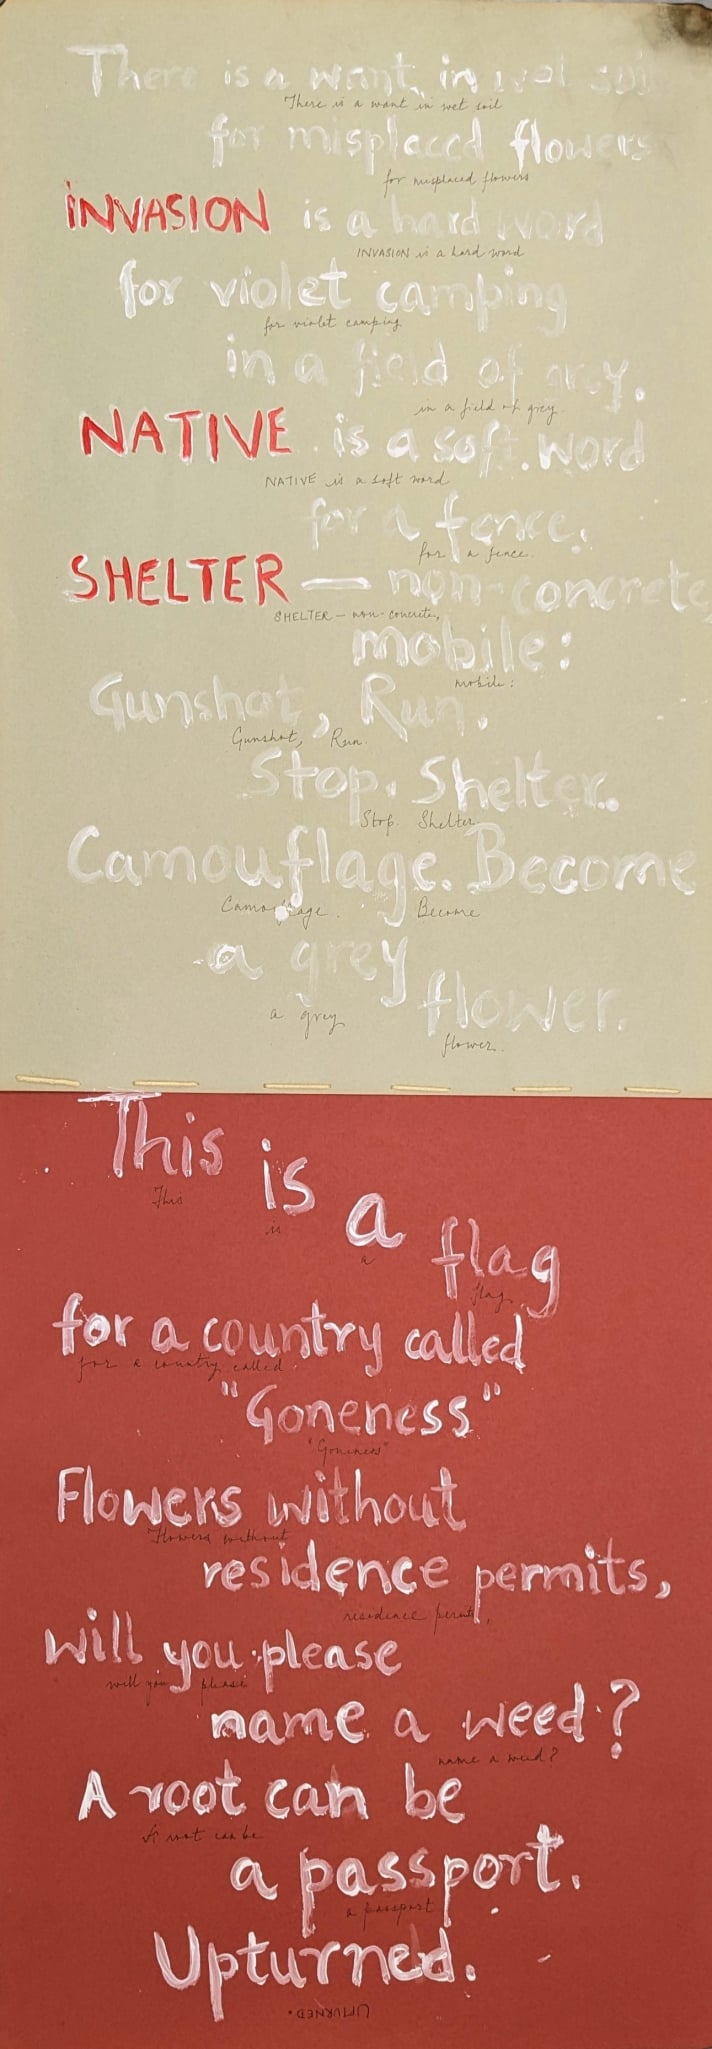 There is a want in wet soil
There is a want in wet soil
for misplaced flowers
for misplaced flowers
INVASION is a hard word
INVASION is a hard word
for violet camping
for violet camping
in a field of grey.
in a field of grey.
NATIVE is a soft word
NATIVE is a soft word
for a fence.
for a fence.
SHELTER — non-concrete,
SHELTER — non-concrete,
mobile:
mobile:
Gunshot, Run.
Gunshot, Run.
Stop. Shelter.
Stop. Shelter
Camouflage. Become
Camouflage. Become
a grey
a grey
flower.
flower.
This is a flag
This is a flag
for a country called
for a country called
"Goneness"
"Goneness"
Flowers without
Flowers without
residence permits,
residence permits,
will you please
will you please
name a weed?
name a weed?
A root can be
A root can be
a passport.
a passport
Upturned.
UPTURNED.